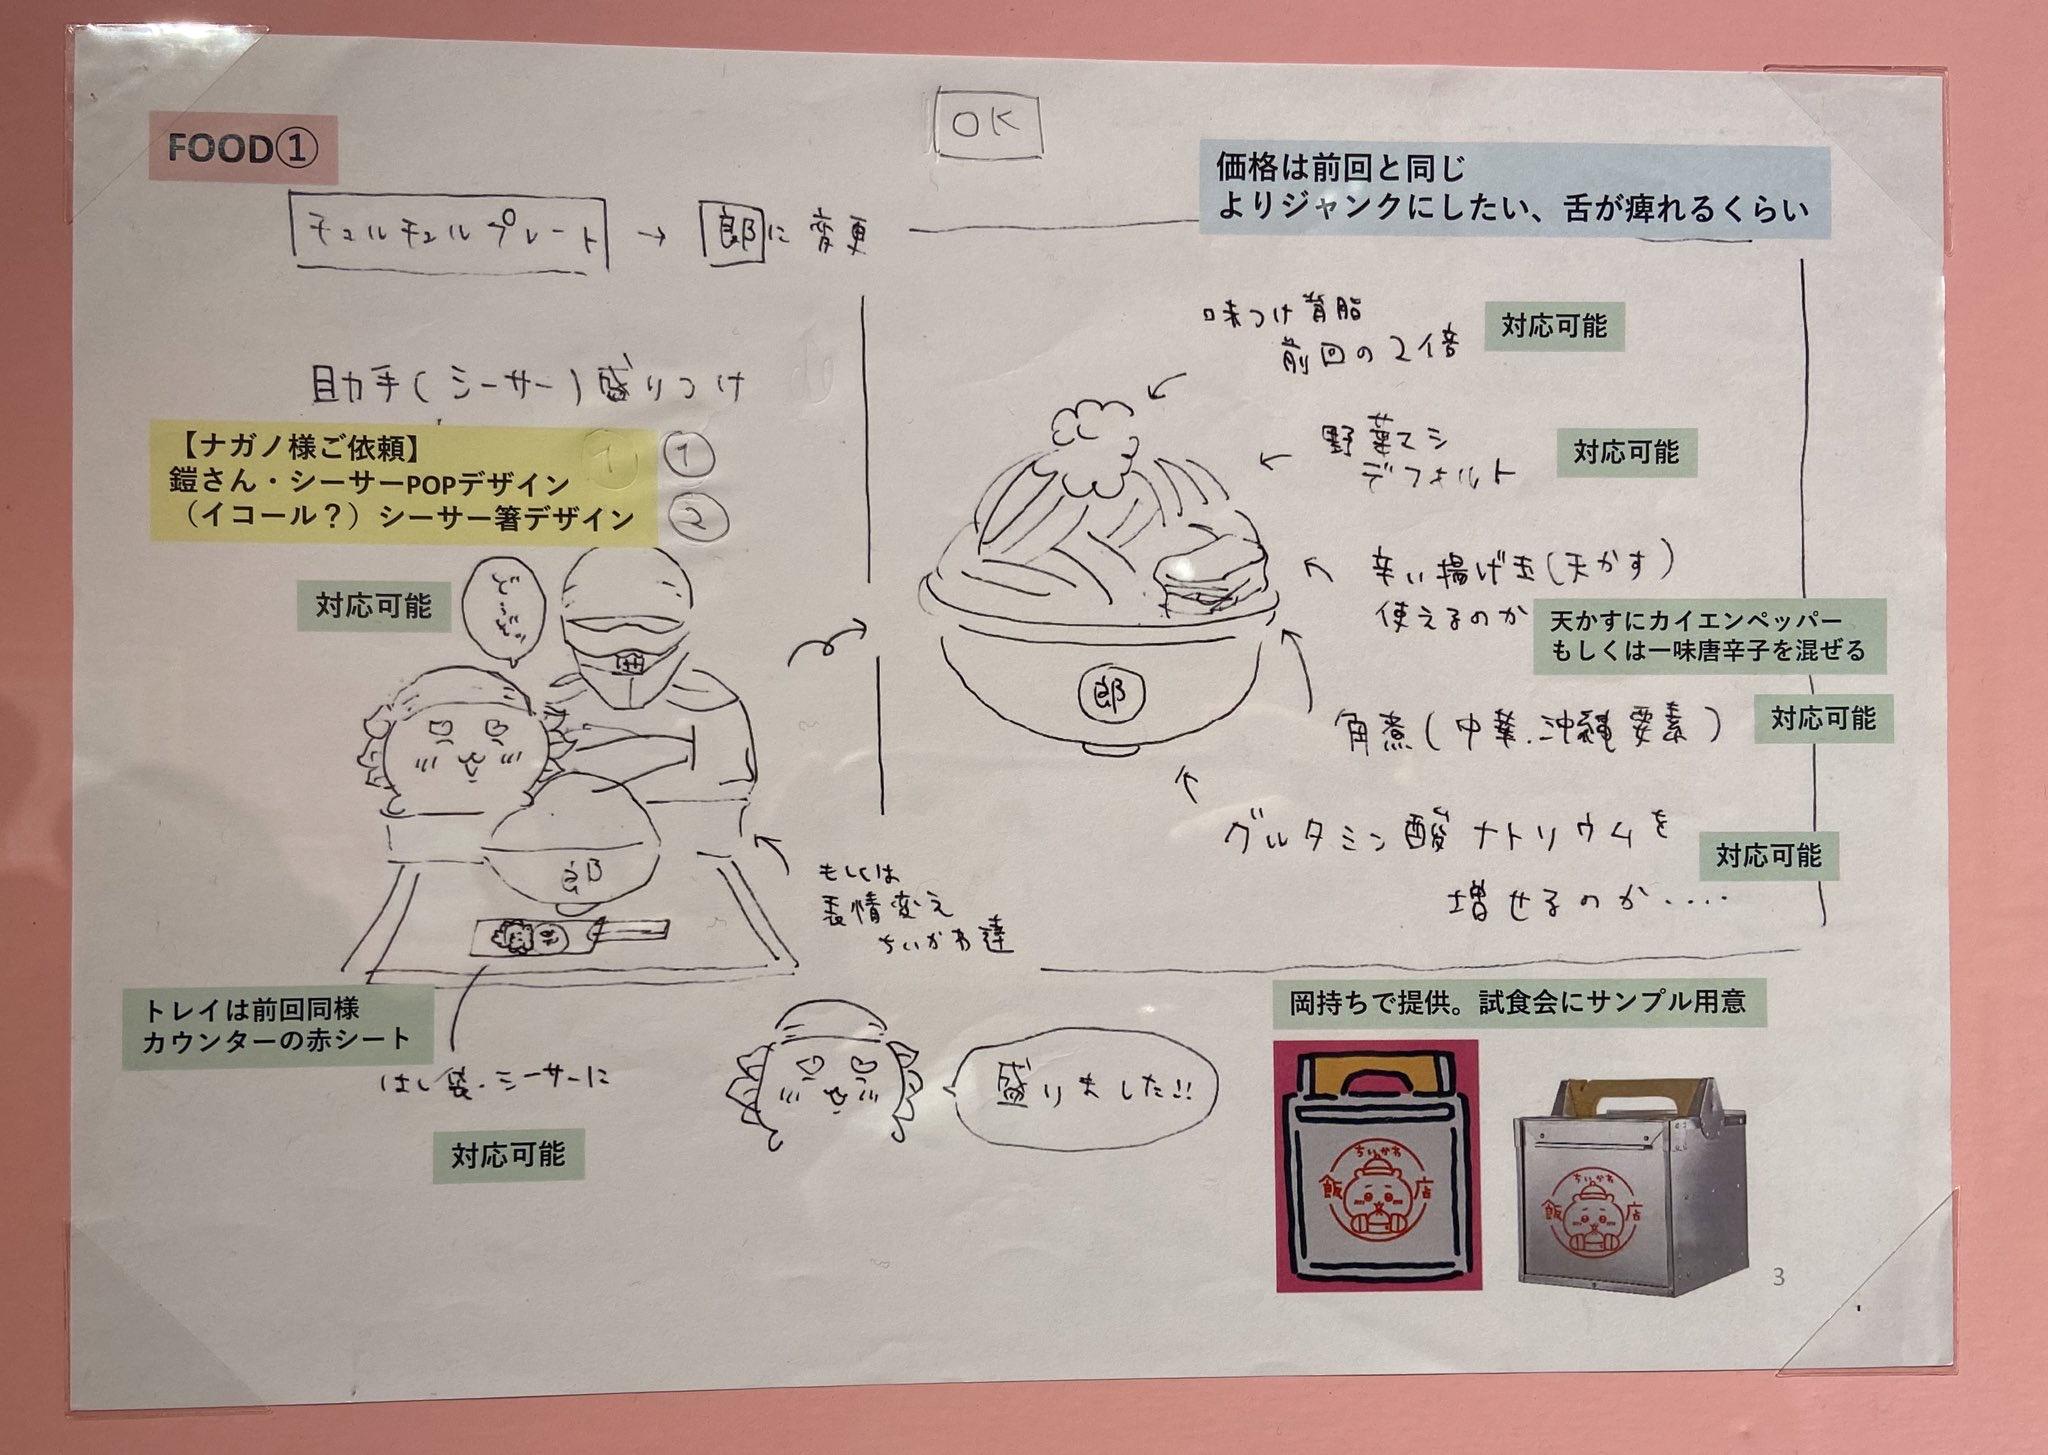 FOOD①
OK
価格は前回と同じ
よりジャンクにしたい、舌が痺れるくらい
チュルチュルプレート → 郎に変更
助手(シーサー)盛りつけ
【ナガノ様ご依頼】
鎧さん・シーサーPOPデザイン ①
（イコール？）シーサー箸デザイン ②
対応可能
どうぞッ
郎
もしくは
表情変え
ちいかわ達
トレイは前回同様
カウンターの赤シート
はし袋.シーサーに
対応可能
盛りました!!
味つけ背脂
前回の2倍
対応可能
野菜マシ
デフォルト
対応可能
辛い揚げ玉(天かす)
使えるのか
天かすにカイエンペッパー
もしくは一味唐辛子を混ぜる
郎
角煮(中華.沖縄要素)
対応可能
グルタミン酸ナトリウムを
増せるのか....
対応可能
岡持ちで提供。試食会にサンプル用意
ちいかわ
飯店
ちいかわ
飯店
3